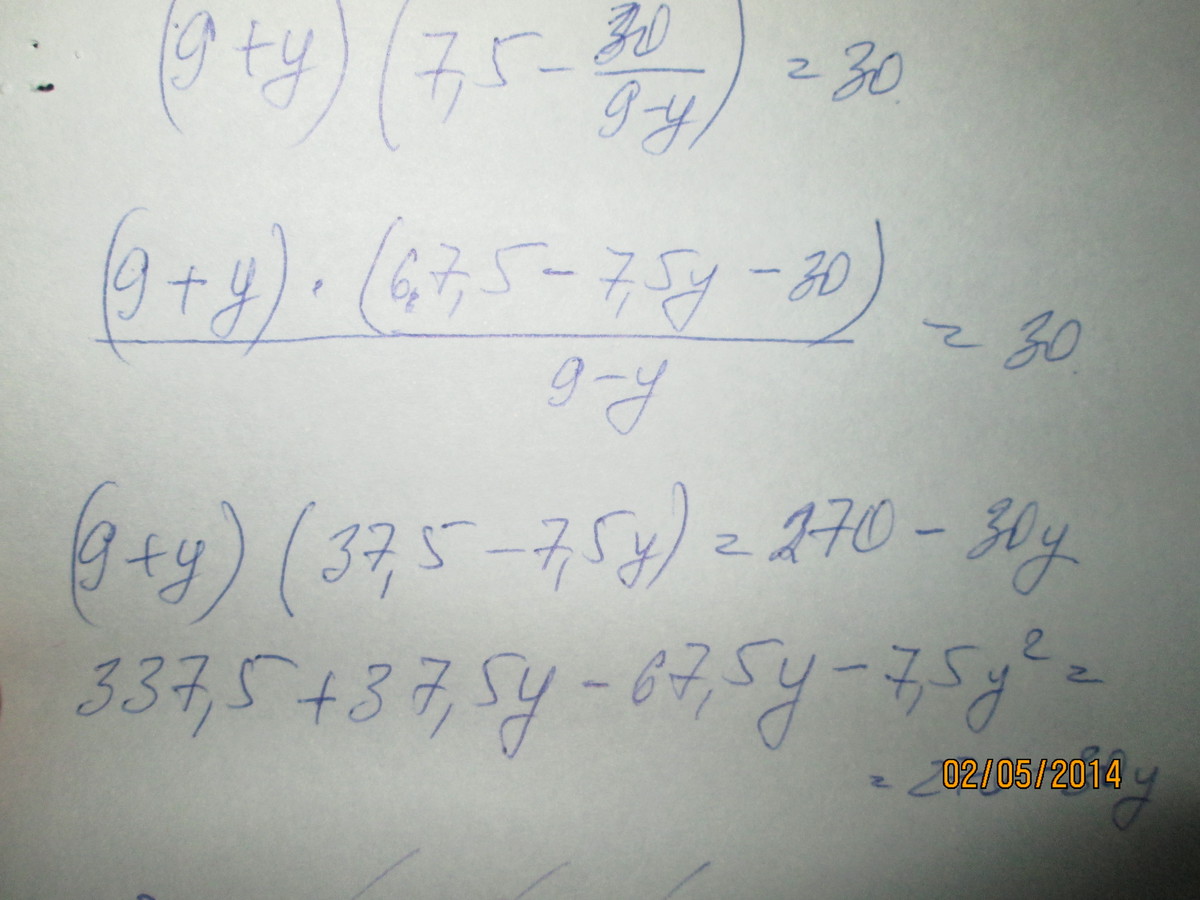 (9+y)(7,5-30/(9-y))=30
(9+y)·(67,5-7,5y-30)/(9-y)=30
(9+y)(37,5-7,5y)=270-30y
337,5+37,5y-67,5y-7,5y²=
02/05/2014